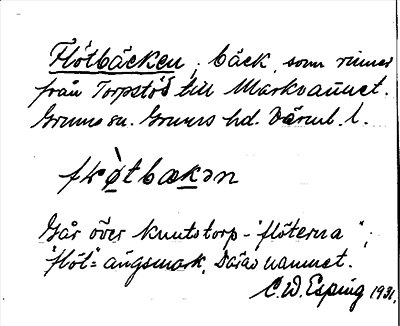 Flötbäcken, bäck, som rinner
från Torpstöd till Markvattnet.
Grums sn. Grums hd. Värml. l.
Går över Knutstorp-"flöterna";
"flöt"= ängsmark. Därav namnet.
C.W. Esping 1931.